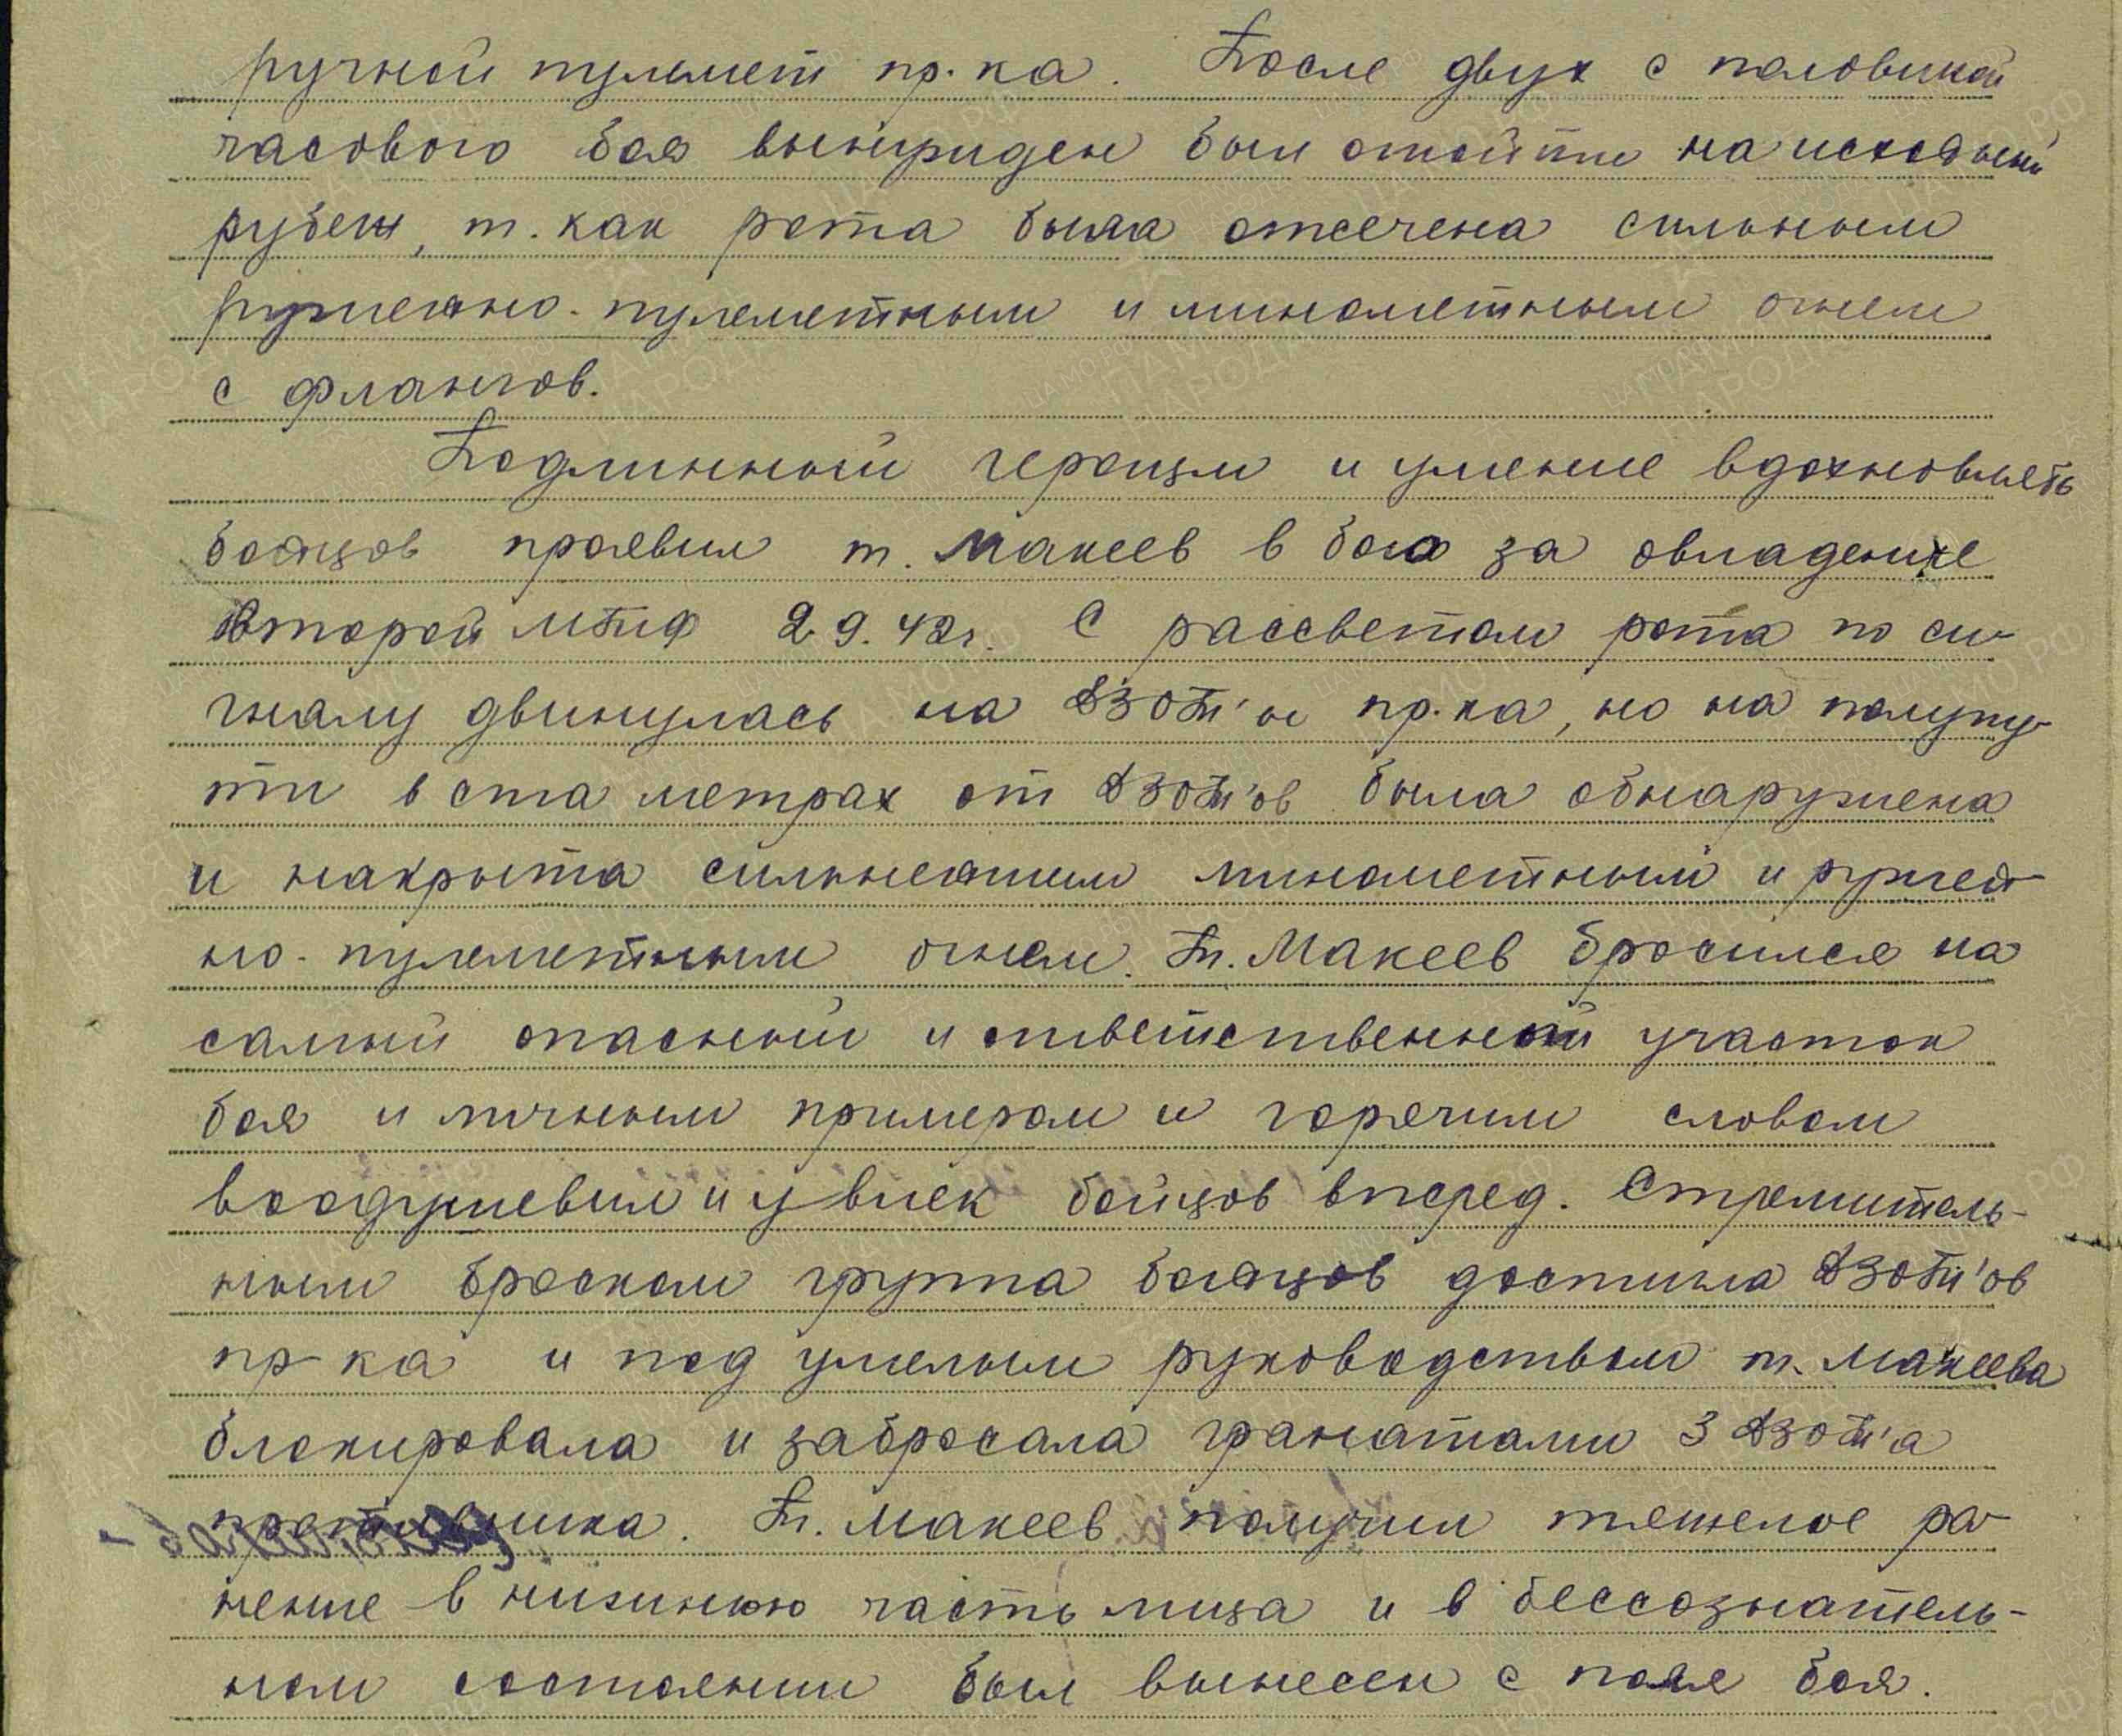 ручной пулемет пр-ка. После двух с половиной
часового боя вынужден был отойти на исходный
рубеж, т. как рота была отсечена сильным
ружейно-пулеметным и минометным огнем
с флангов.
Подлинный героизм и умение вдохновлять
бойцов проявил т. Макеев в бою за овладение
второй МТФ 2.9.42г. С рассветом рота по си-
гналу двинулась на ДЗОТ'ы пр-ка, но на полпу-
ти в ста метрах от ДЗОТ'ов была обнаружена
и накрыта сильнейшим минометным и ружей-
но-пулеметным огнем. Т. Макеев бросился на
самый опасный и ответственный участок
боя и личным примером и горячим словом
воодушевил и увлек бойцов вперед. Стремитель-
ным броском группа бойцов достигла ДЗОТ'ов
пр-ка и под умелым руководством т. Макеева
блокировала и забросала гранатами 3 ДЗОТ'а
противника. Т. Макеев получил тяжелое ра-
нение в нижнюю часть лица и в бессознатель-
ном состоянии был вынесен с поля боя.